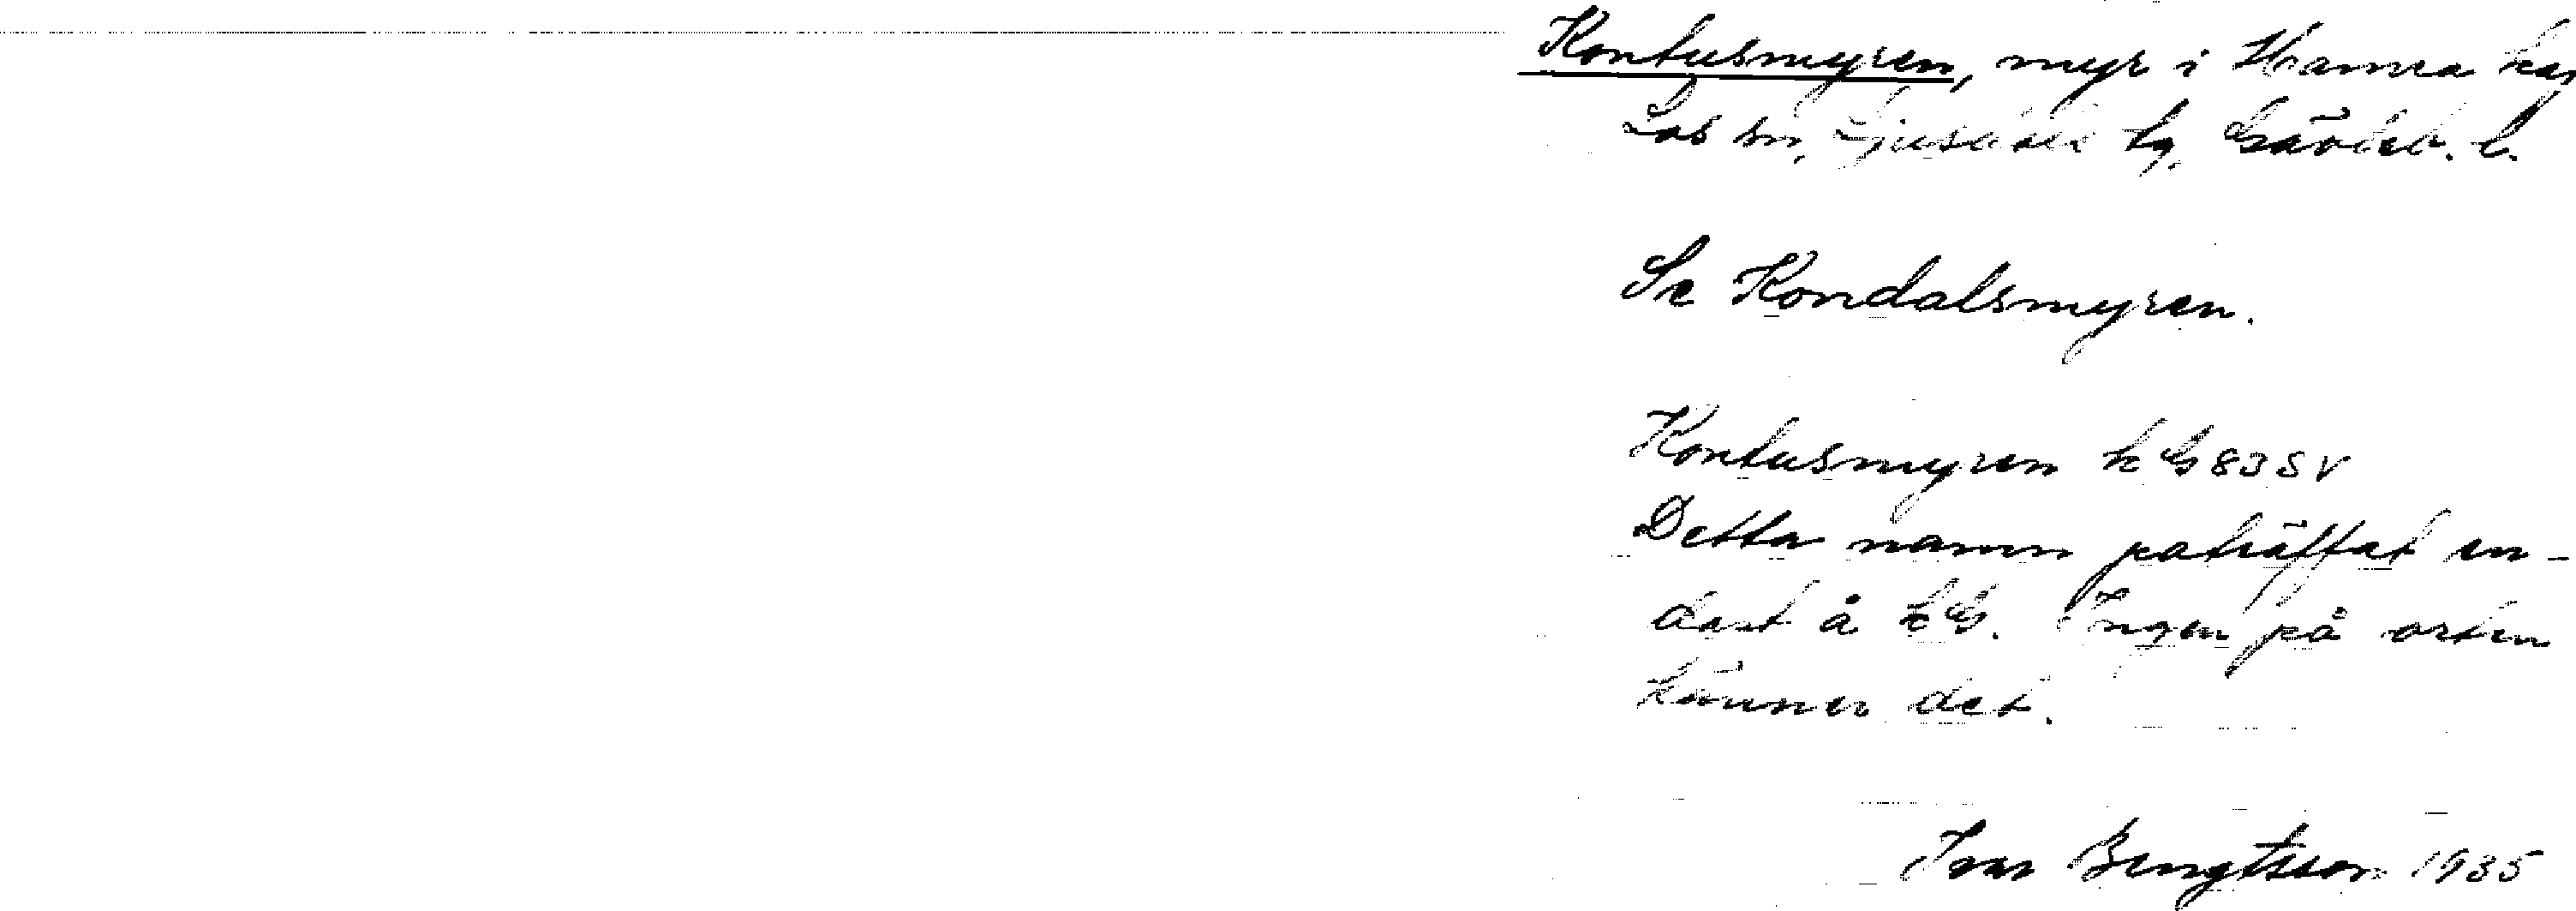 Kontusmyren, myr i Hamra kap
Los sn, Ljusdals tg, Gävleb. l.
Se Kondalsmyren.
Kontusmyren k G 83 SV
Detta namn påträffat en-
dast å k G. Ingen på orten
känner det.
Ivar Bengtsson 1935